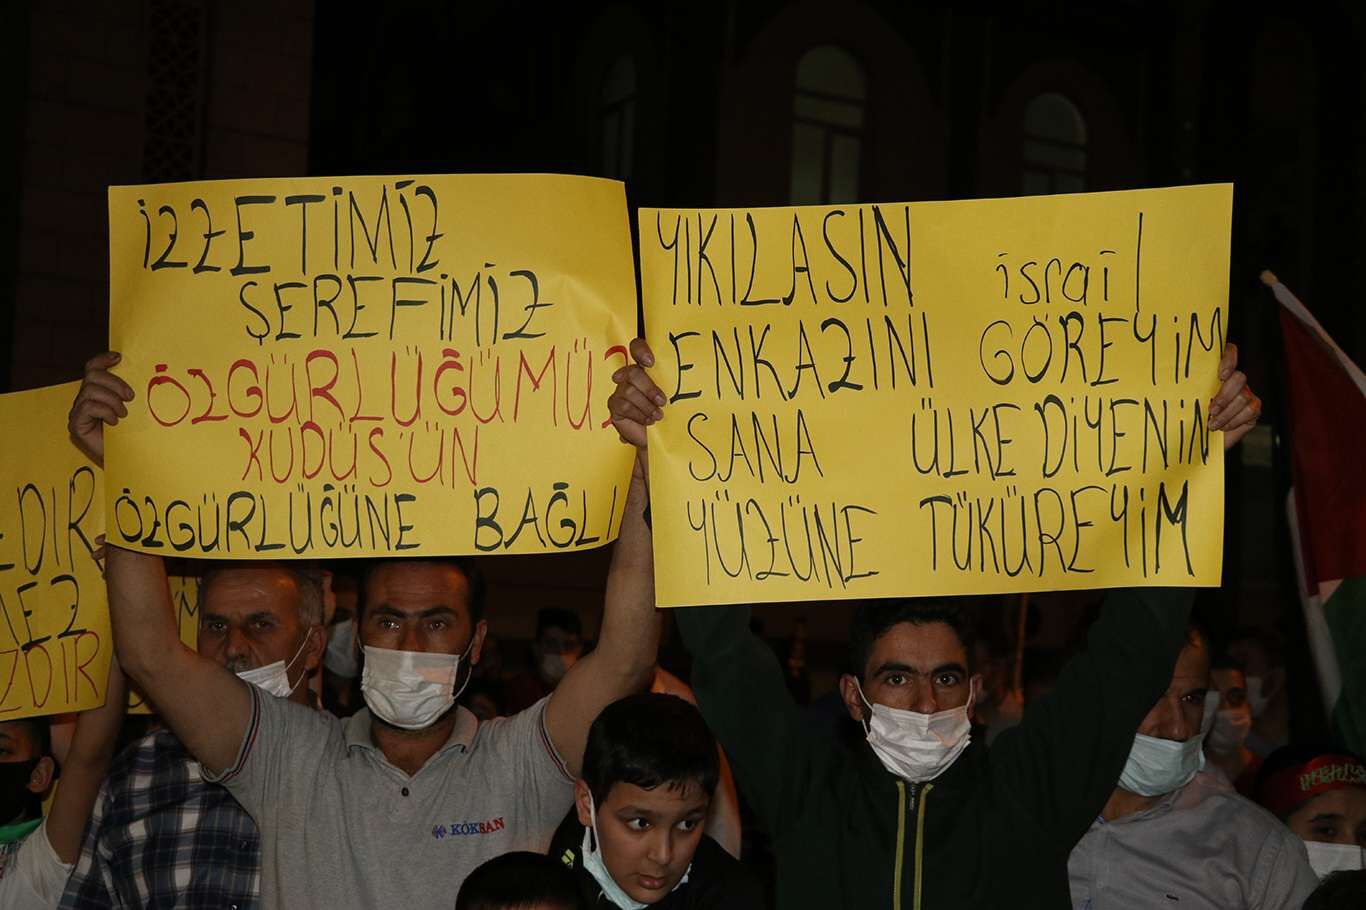 İZZETİMİZ
ŞEREFİMİZ
ÖZGÜRLÜĞÜMÜZ
KUDÜS'ÜN
ÖZGÜRLÜĞÜNE BAĞLI
YIKILASIN israil
ENKAZINI GÖREYİM
SANA ÜLKE DİYENİN
YÜZÜNE TÜKÜREYİM
KÖKSAN